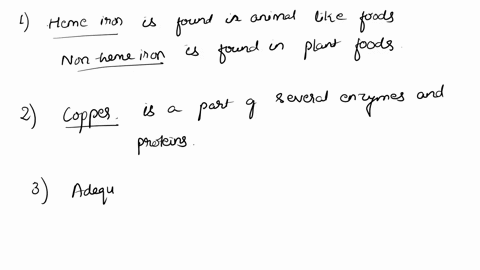 1) Heme iron is found in animal like foods
Non heme iron is found in plant foods.
2) Copper. is a part of several enzymes and
proteins.
3) Adequ